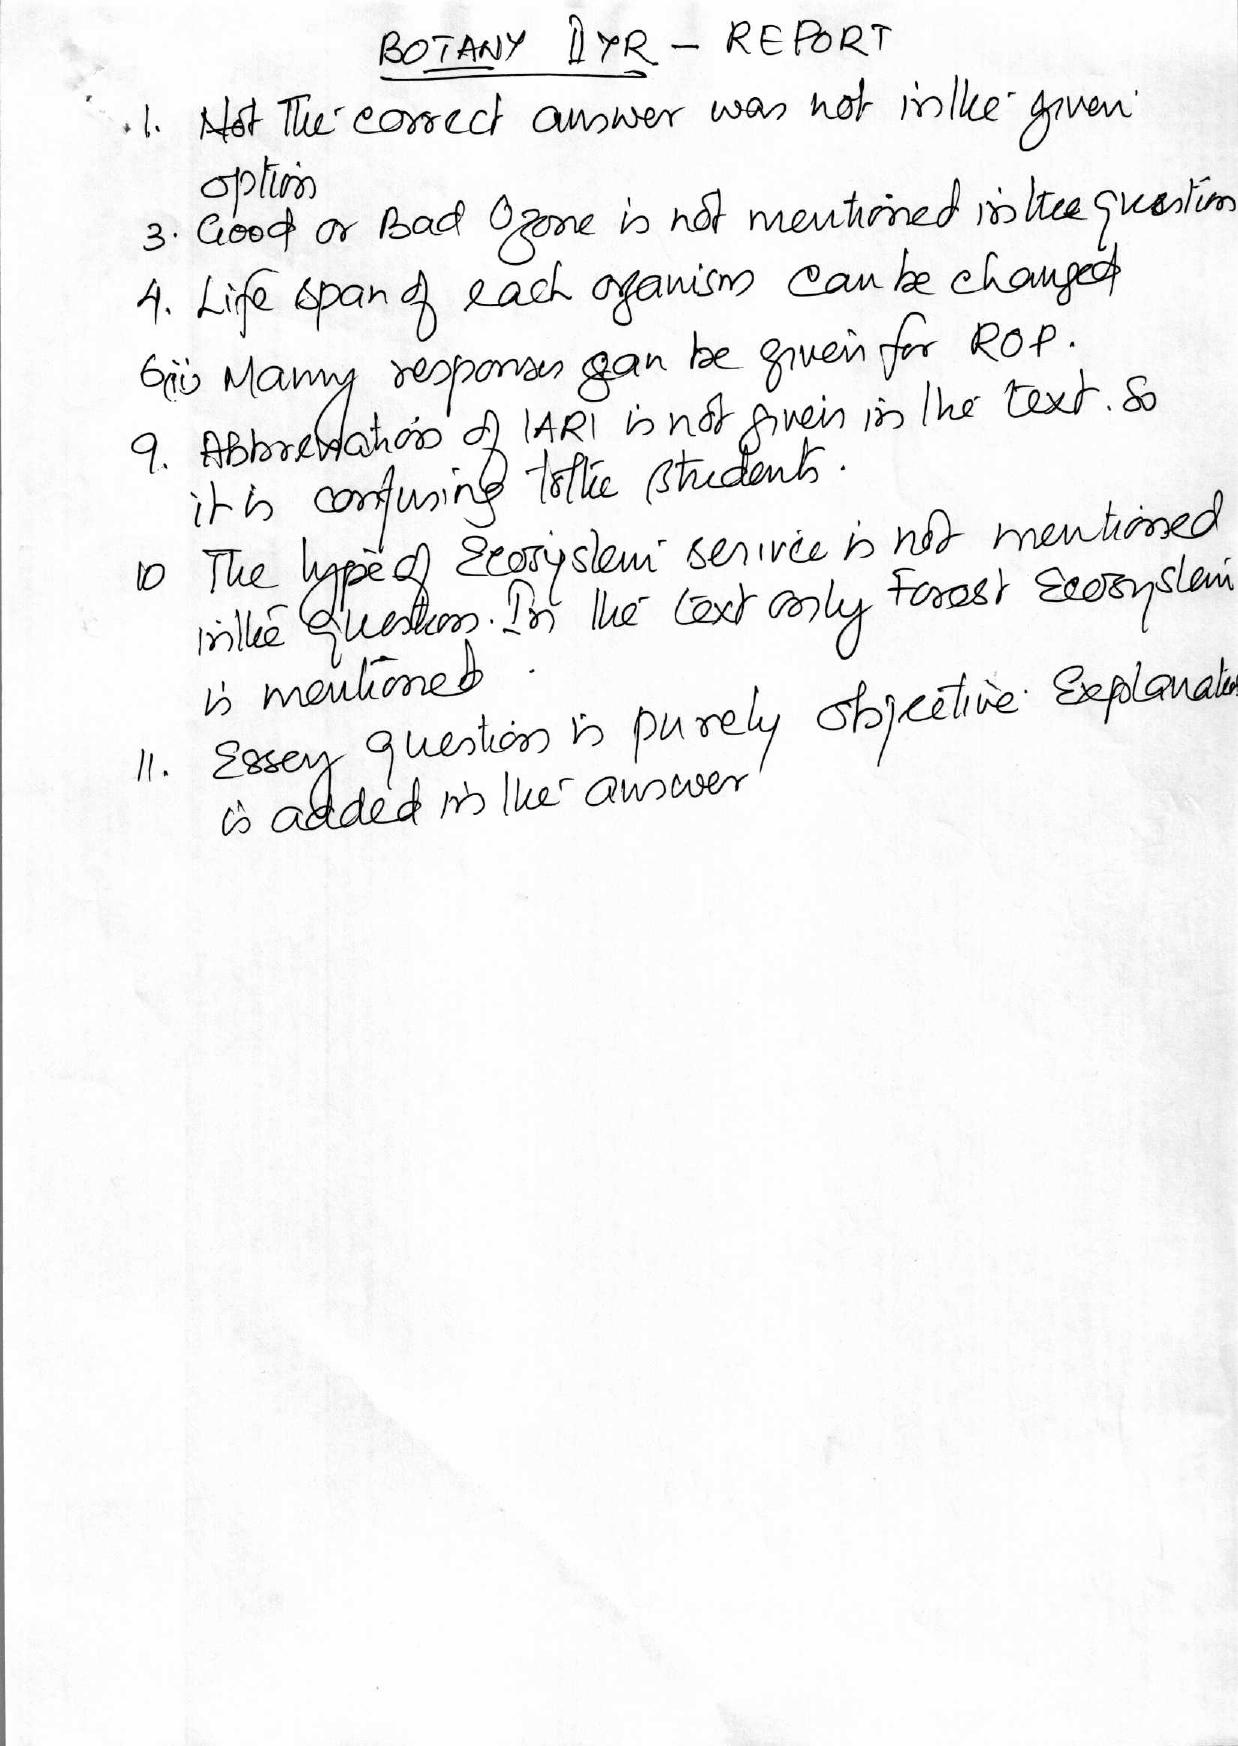 BOTANY II YR - REPORT
1. Not The correct answer was not in the given
option
3. Good or Bad Ozone is not mentioned in the question
4. Life span of each organism can be changed
6(ii) Many responses can be given for ROP.
9. Abbreviation of IARI is not given in the text. So
it is confusing to the students.
10 The type of Ecosystem service is not mentioned
in the question. In the text only Forest Ecosystem
is mentioned.
11. Essey question is purely objective. Explanation
is added in the answer